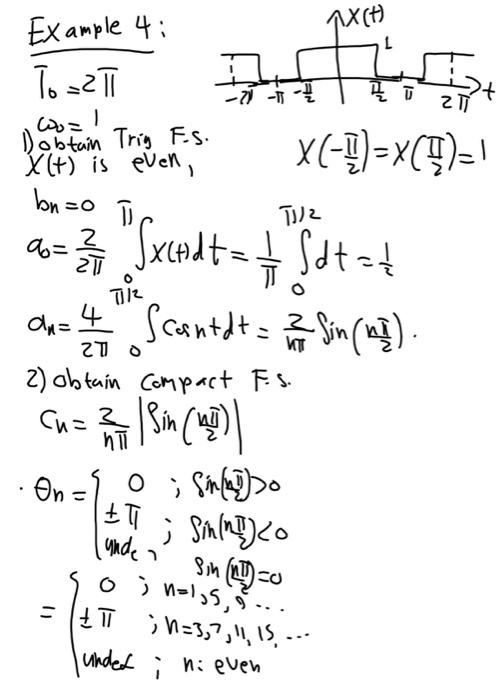 Example 4:
T₀ = 2π
ω₀ = 1
X(t)
1
-2π -π -π/2 π/2 π 2π t
1) obtain Trig F.S.
X(t) is even,
X(-π/2) = X(π/2) = 1
bn = 0
a₀ = 2/2π ∫₀^π X(t)dt = 1/π ∫₀^π/2 dt = 1/2
an = 4/2π ∫₀^π/2 Cos nt dt = 2/nπ Sin(nπ/2).
2) Obtain Compact F.S.
Cn = 2/nπ |Sin(nπ/2)|
θn = { 0 ; Sin(nπ/2) > 0
±π ; Sin(nπ/2) < 0
undef ; Sin(nπ/2) = 0
= { 0 ; n=1,5,9...
±π ; n=3,7,11,15,...
undef ; n: even